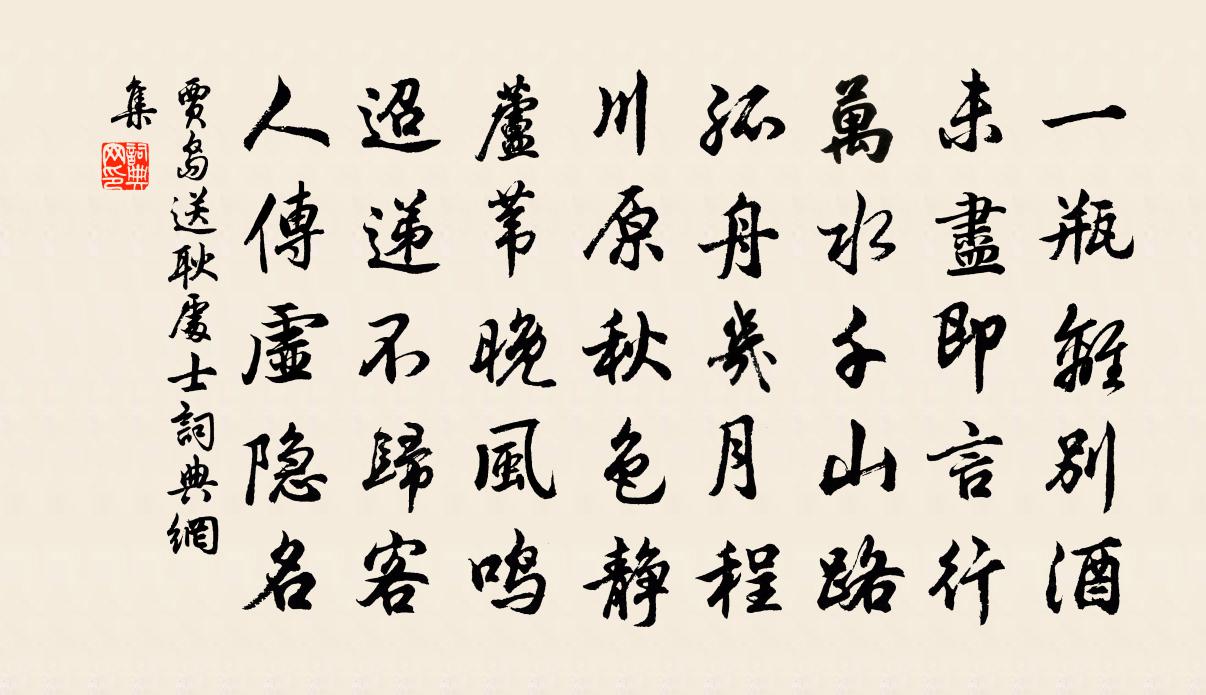 一瓶離別酒
未盡即言行
萬水千山路
孤舟幾月程
川原秋色静
蘆葦晚風鸣
迢遞不歸客
人傳虚隐名
賈島送耿處士詞典網
集
詞典
网印